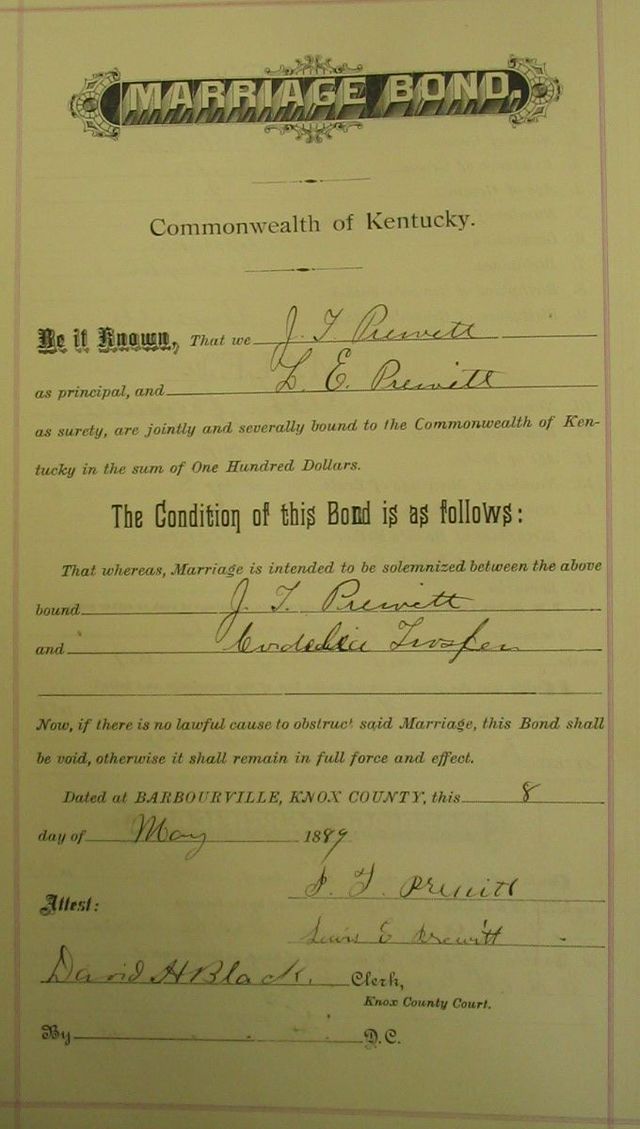 MARRIAGE BOND.
Commonwealth of Kentucky.
Be it Known, That we J. T. Prewitt
as principal, and L. E. Prewitt
as surety, are jointly and severally bound to the Commonwealth of Ken-
tucky in the sum of One Hundred Dollars.
The Condition of this Bond is as follows:
That whereas, Marriage is intended to be solemnized between the above
bound J. T. Prewitt
and Cordelia Trosper
Now, if there is no lawful cause to obstruct said Marriage, this Bond shall
be void, otherwise it shall remain in full force and effect.
Dated at BARBOURVILLE, KNOX COUNTY, this 8
day of May 1889
J. T. Prewitt
Attest:
Lewis E Prewitt
David H Black. Clerk,
Knox County Court.
By D.C.